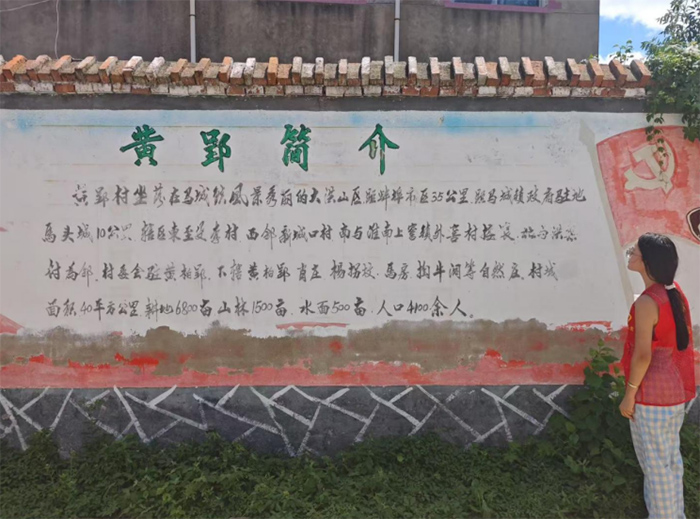 黄郢简介
黄郢村坐落在马城仪风景秀丽的大洪山区距蚌埠市区35公里,距马城镇政府驻地
马头城10公里,辖区东至夏李村,西邻新城口村南与淮南上窑镇外窑村接
村为邻,村委会驻黄柏郢,下辖黄柏郢肖庄、杨坟、马房、狗牛洞等自然庄,村域
面积40平方公里,耕地6800亩山林1500亩,水面500亩,人口4100余人。